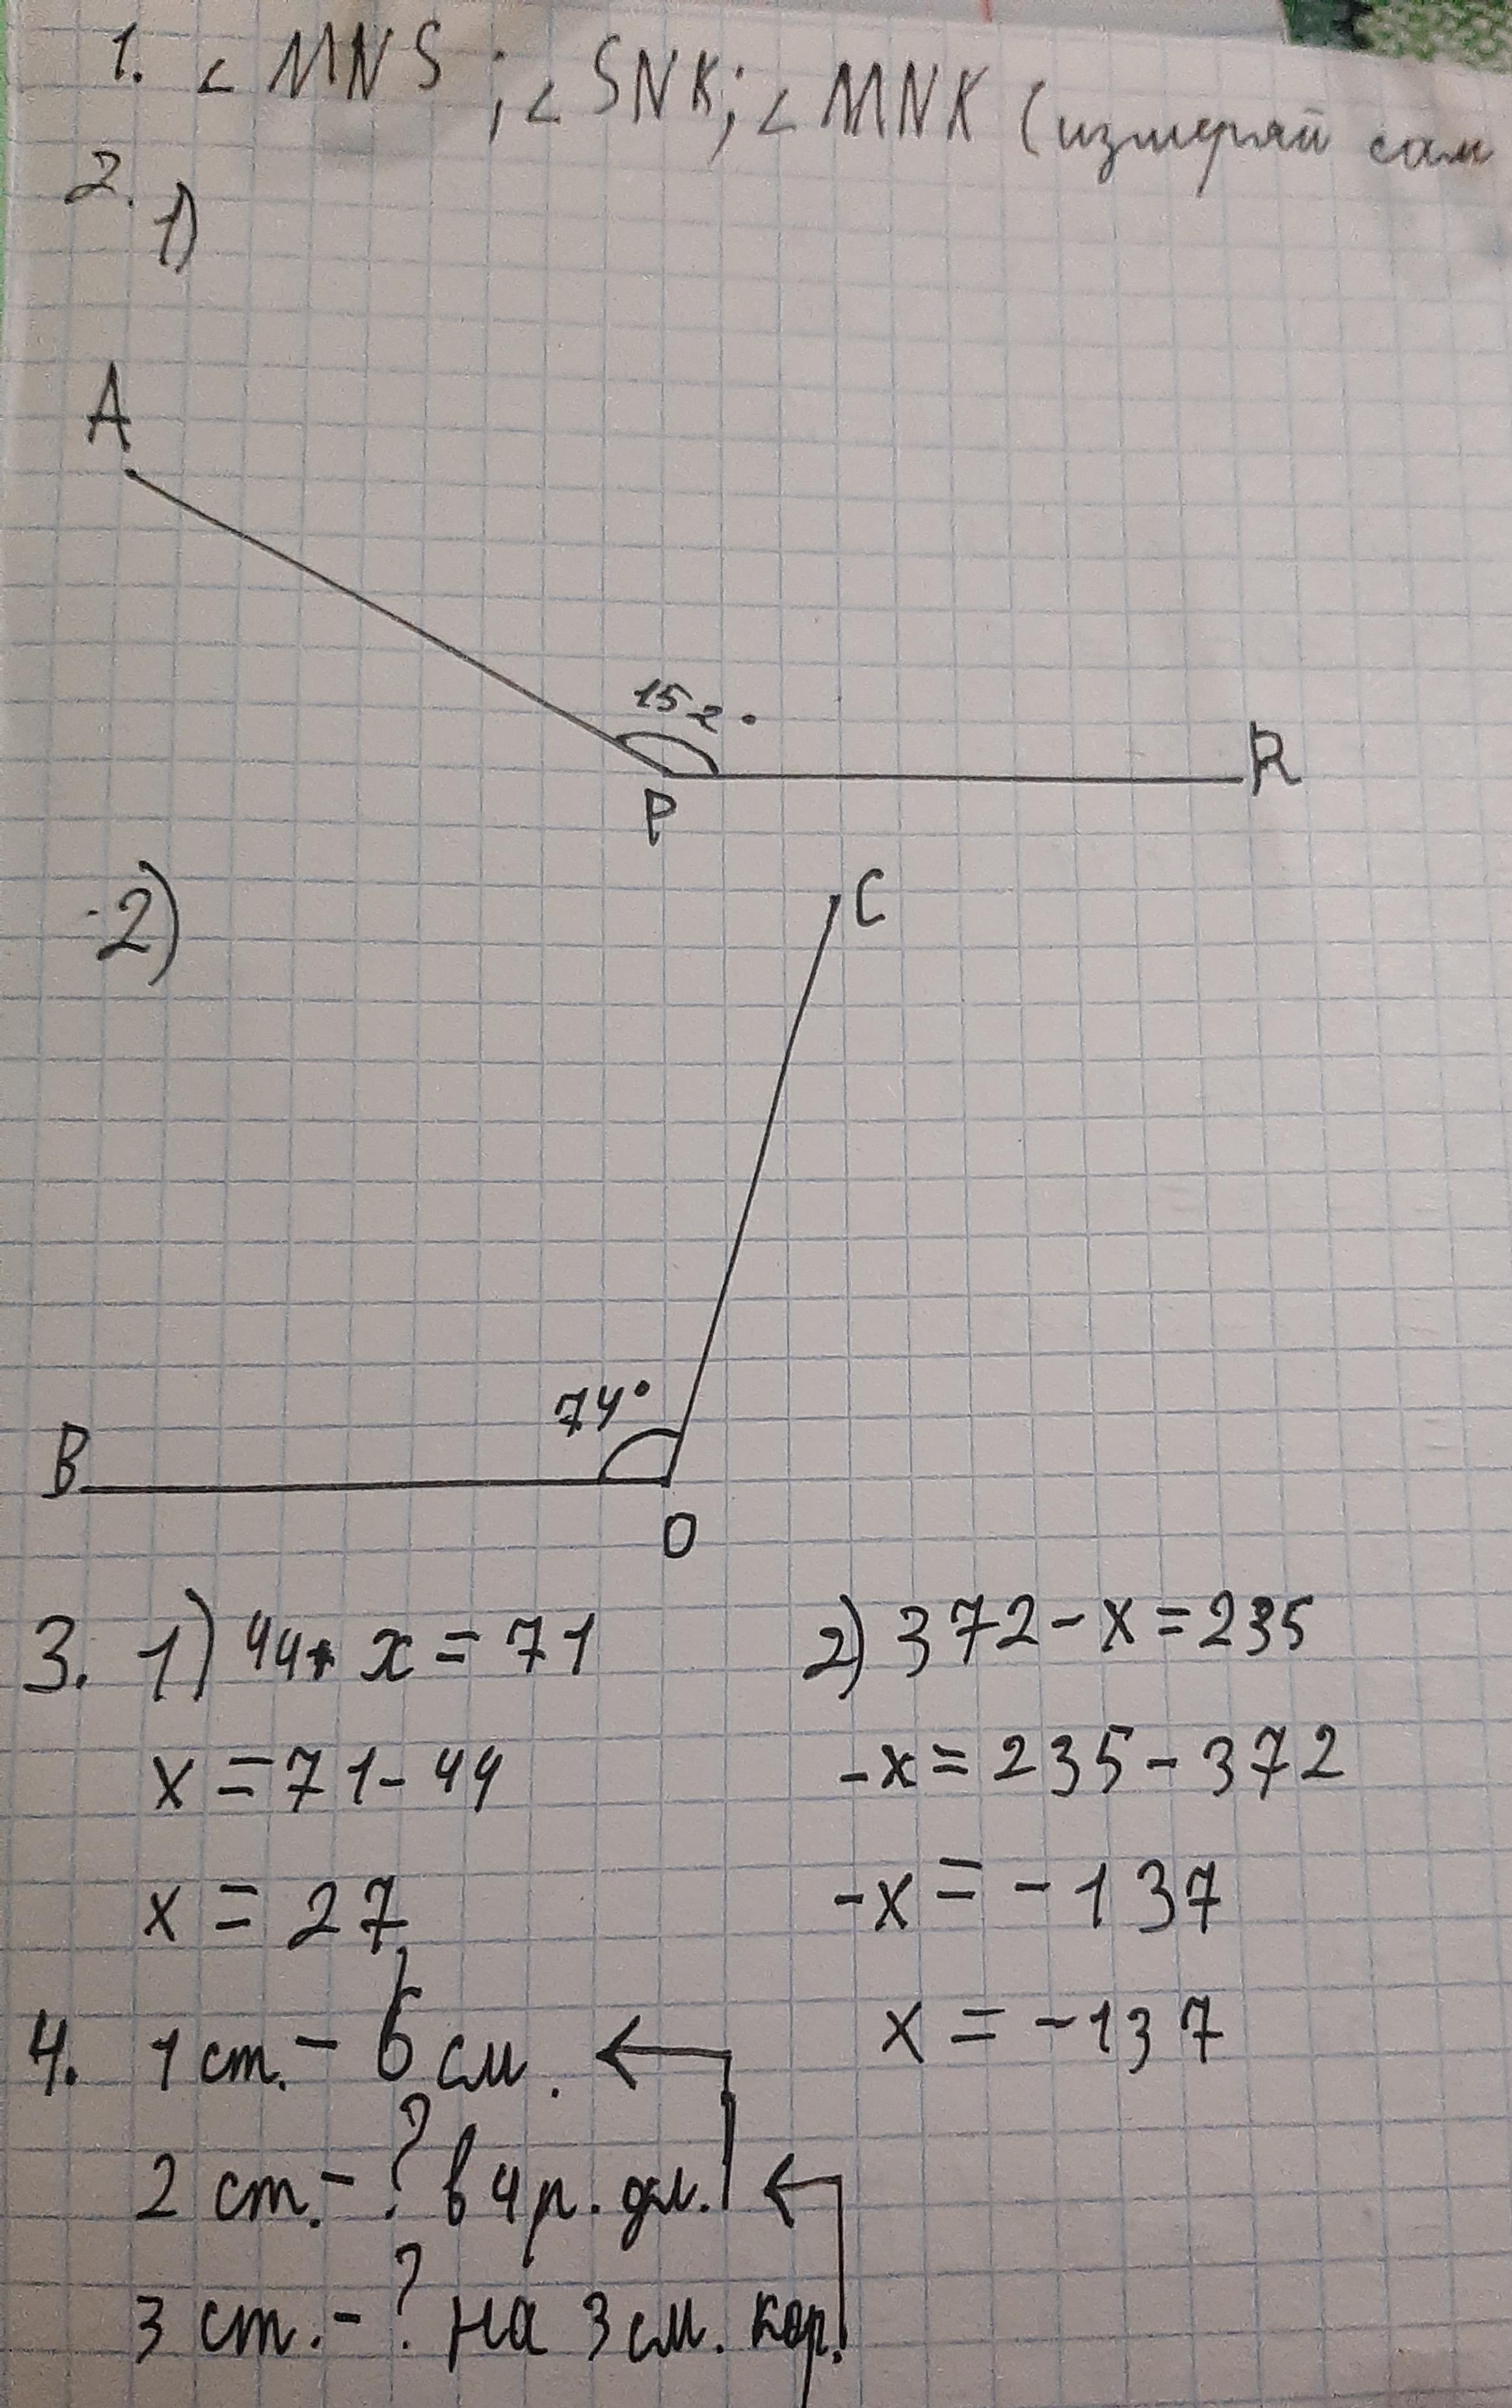 1. ∠MNS; ∠SNK; ∠MNK (измеряй сам
2.
1)
A
152°
P
R
2)
C
74°
B
O
3. 1) 44+x=71
x=71-44
x=27
2) 372-x=235
-x=235-372
-x=-137
x=-137
4. 1 ст. - 6 см.
2 ст. - ? в 4 р. дл.
3 ст. - ? на 3 см. кор.